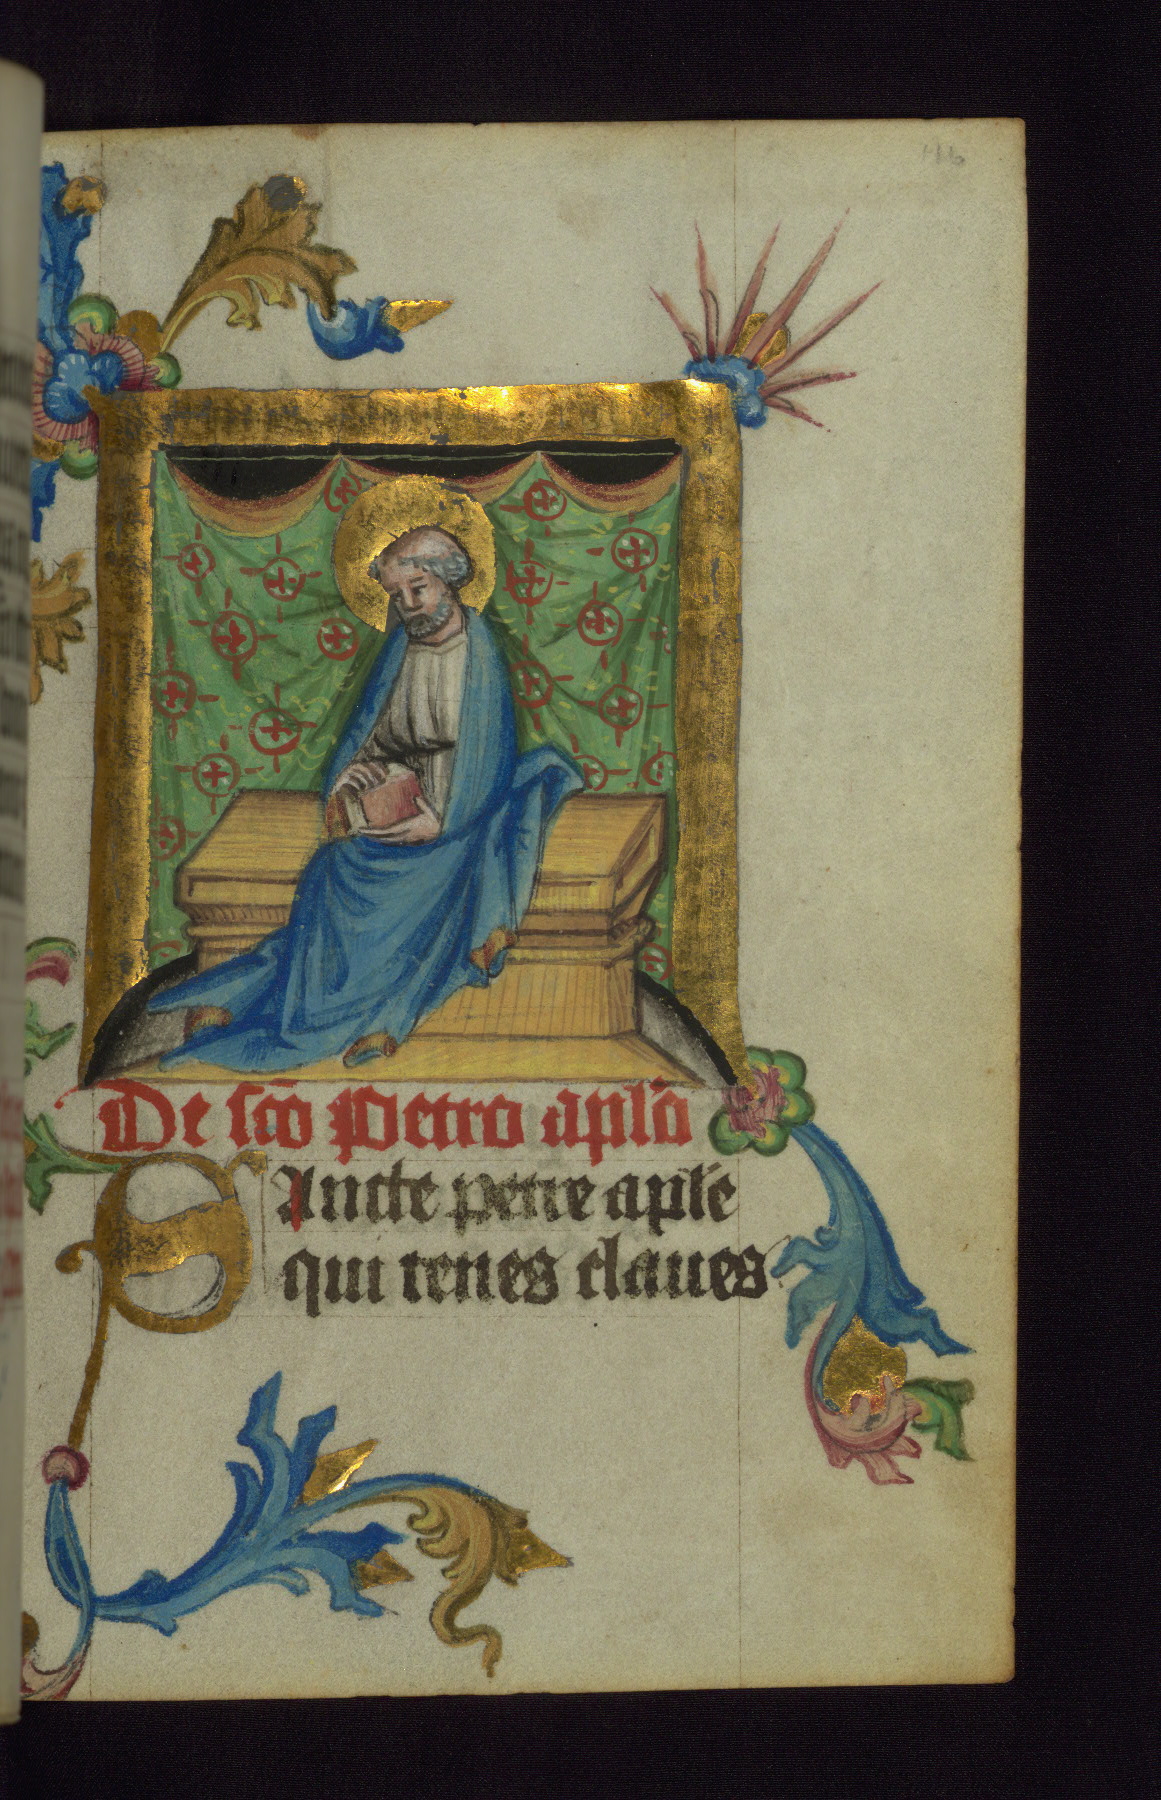 116
De sc̄o Petro apl̄o
SAncte petre apl̄e
qui tenes claues